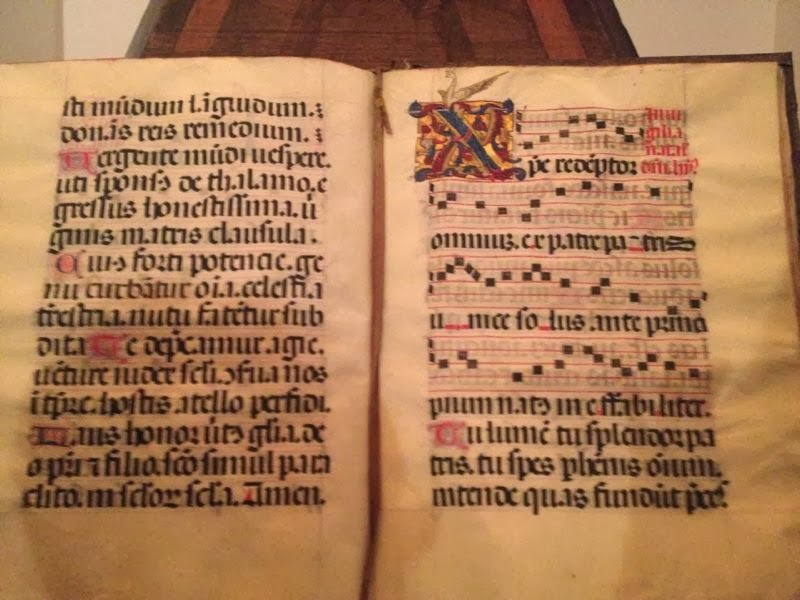 sti mūdium lāguidum:
donās reis remedium:
Uergente mūdi uespere.
uti sponsꝰ de thalamo. e
gressus honestissima. ui
ginis matris clausula.
Cuiꝰ forti potencie. ge
nu curbātur oīa. celestia
trēstria. nutu fatētur sub
dita. Te depcamur. agie.
uēture iudex scli. ꝯſua nos
ītpre. hostis a telo perfidi.
Laus honor uirtꝰ glia. de
o pri ⁊ filio. scō simul para
clito. in sclor scla. Amen.
Xpe redēptor
omniuz. ex patre patris
unice solus ante princi
pium natꝰ ineffabiliter.
Tu lumē tu splendor pa
tris. tu spes phenis oīum.
intende quas fundūt pces